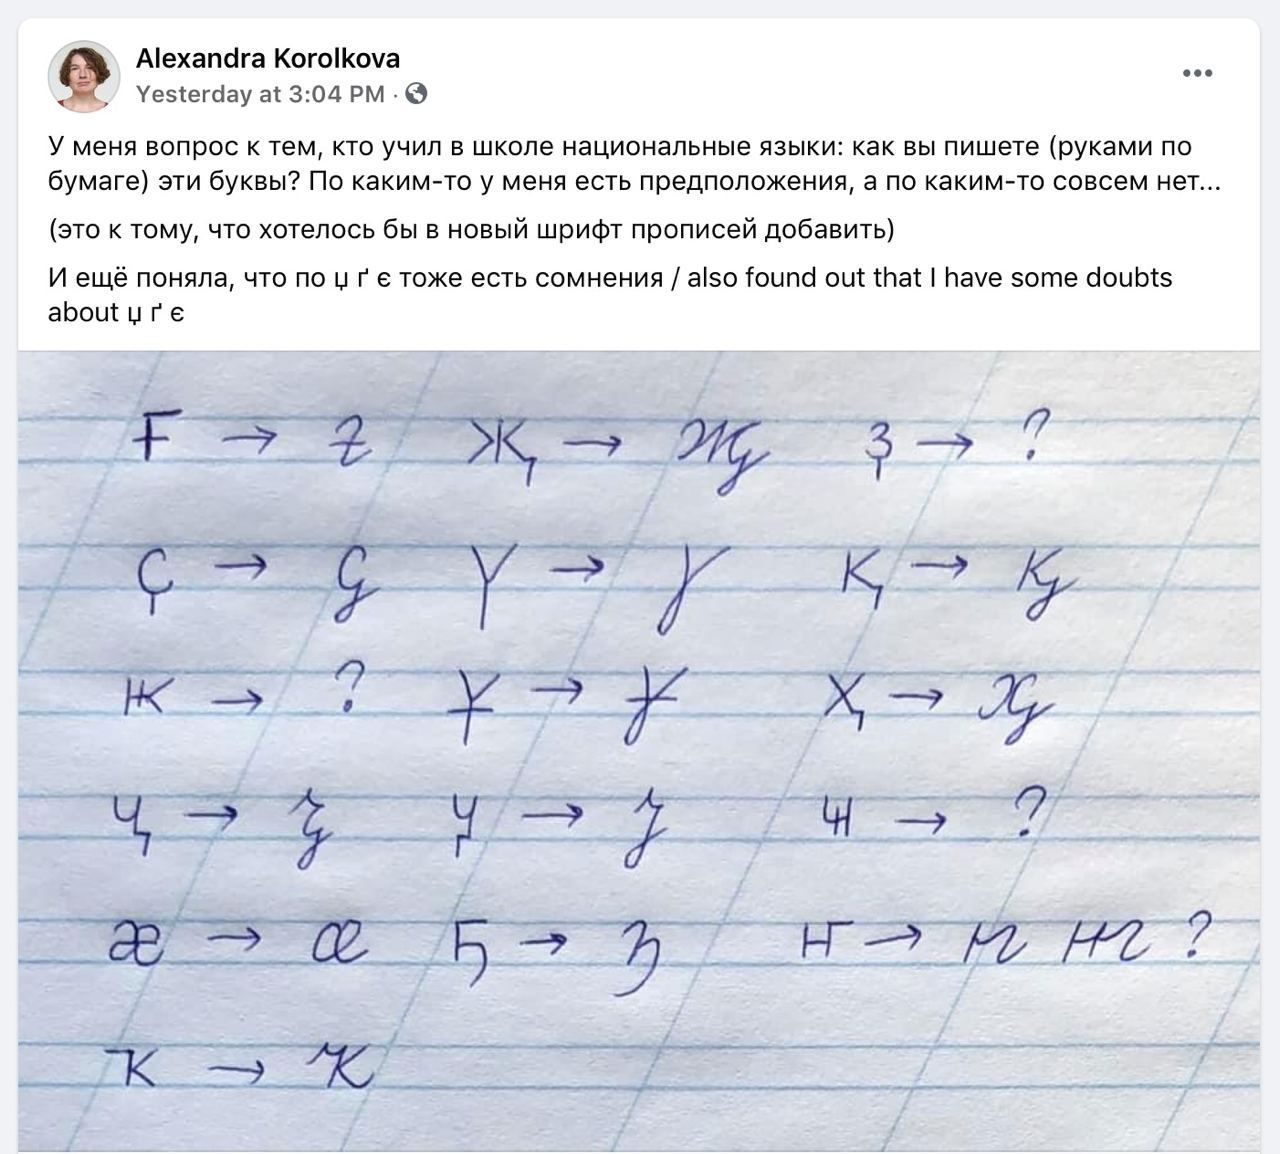 Alexandra Korolkova
Yesterday at 3:04 PM ·
У меня вопрос к тем, кто учил в школе национальные языки: как вы пишете (руками по
бумаге) эти буквы? По каким-то у меня есть предположения, а по каким-то совсем нет...
(это к тому, что хотелось бы в новый шрифт прописей добавить)
И ещё поняла, что по џ ґ є тоже есть сомнения / also found out that I have some doubts
about џ ґ є
Ғ → ғ Җ → җ Ҙ → ?
Ҫ → ҫ Ү → ү Қ → қ
Ҝ → ? Ұ → ұ Ҳ → ҳ
Ҷ → ҷ Џ → џ Ҹ → ?
ӕ → ӕ Ҕ → ҕ Ҥ → ҥ ҥ ?
Ҡ → ҡ